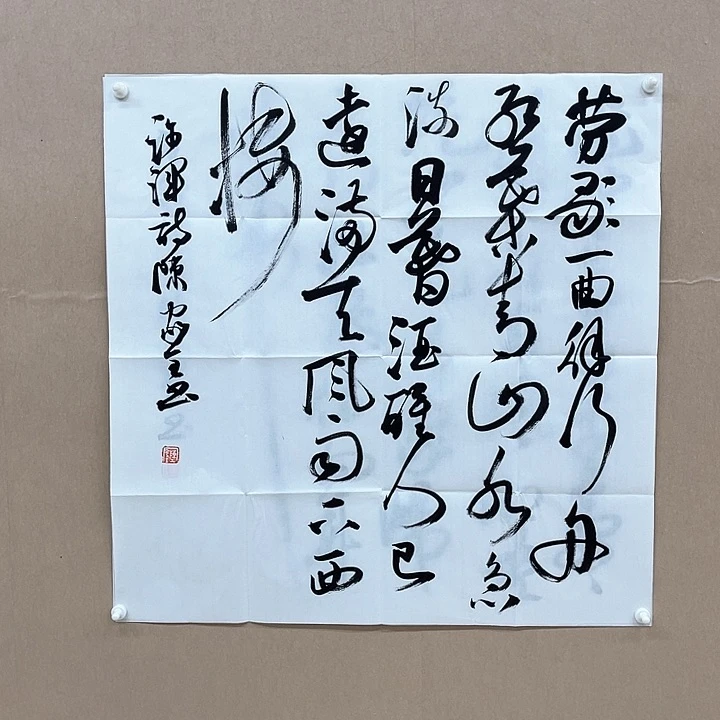 劳歌一曲解行舟
红葉青山水急
流日暮酒醒人已
遠满天风雨下西
楼
许浑诗陈